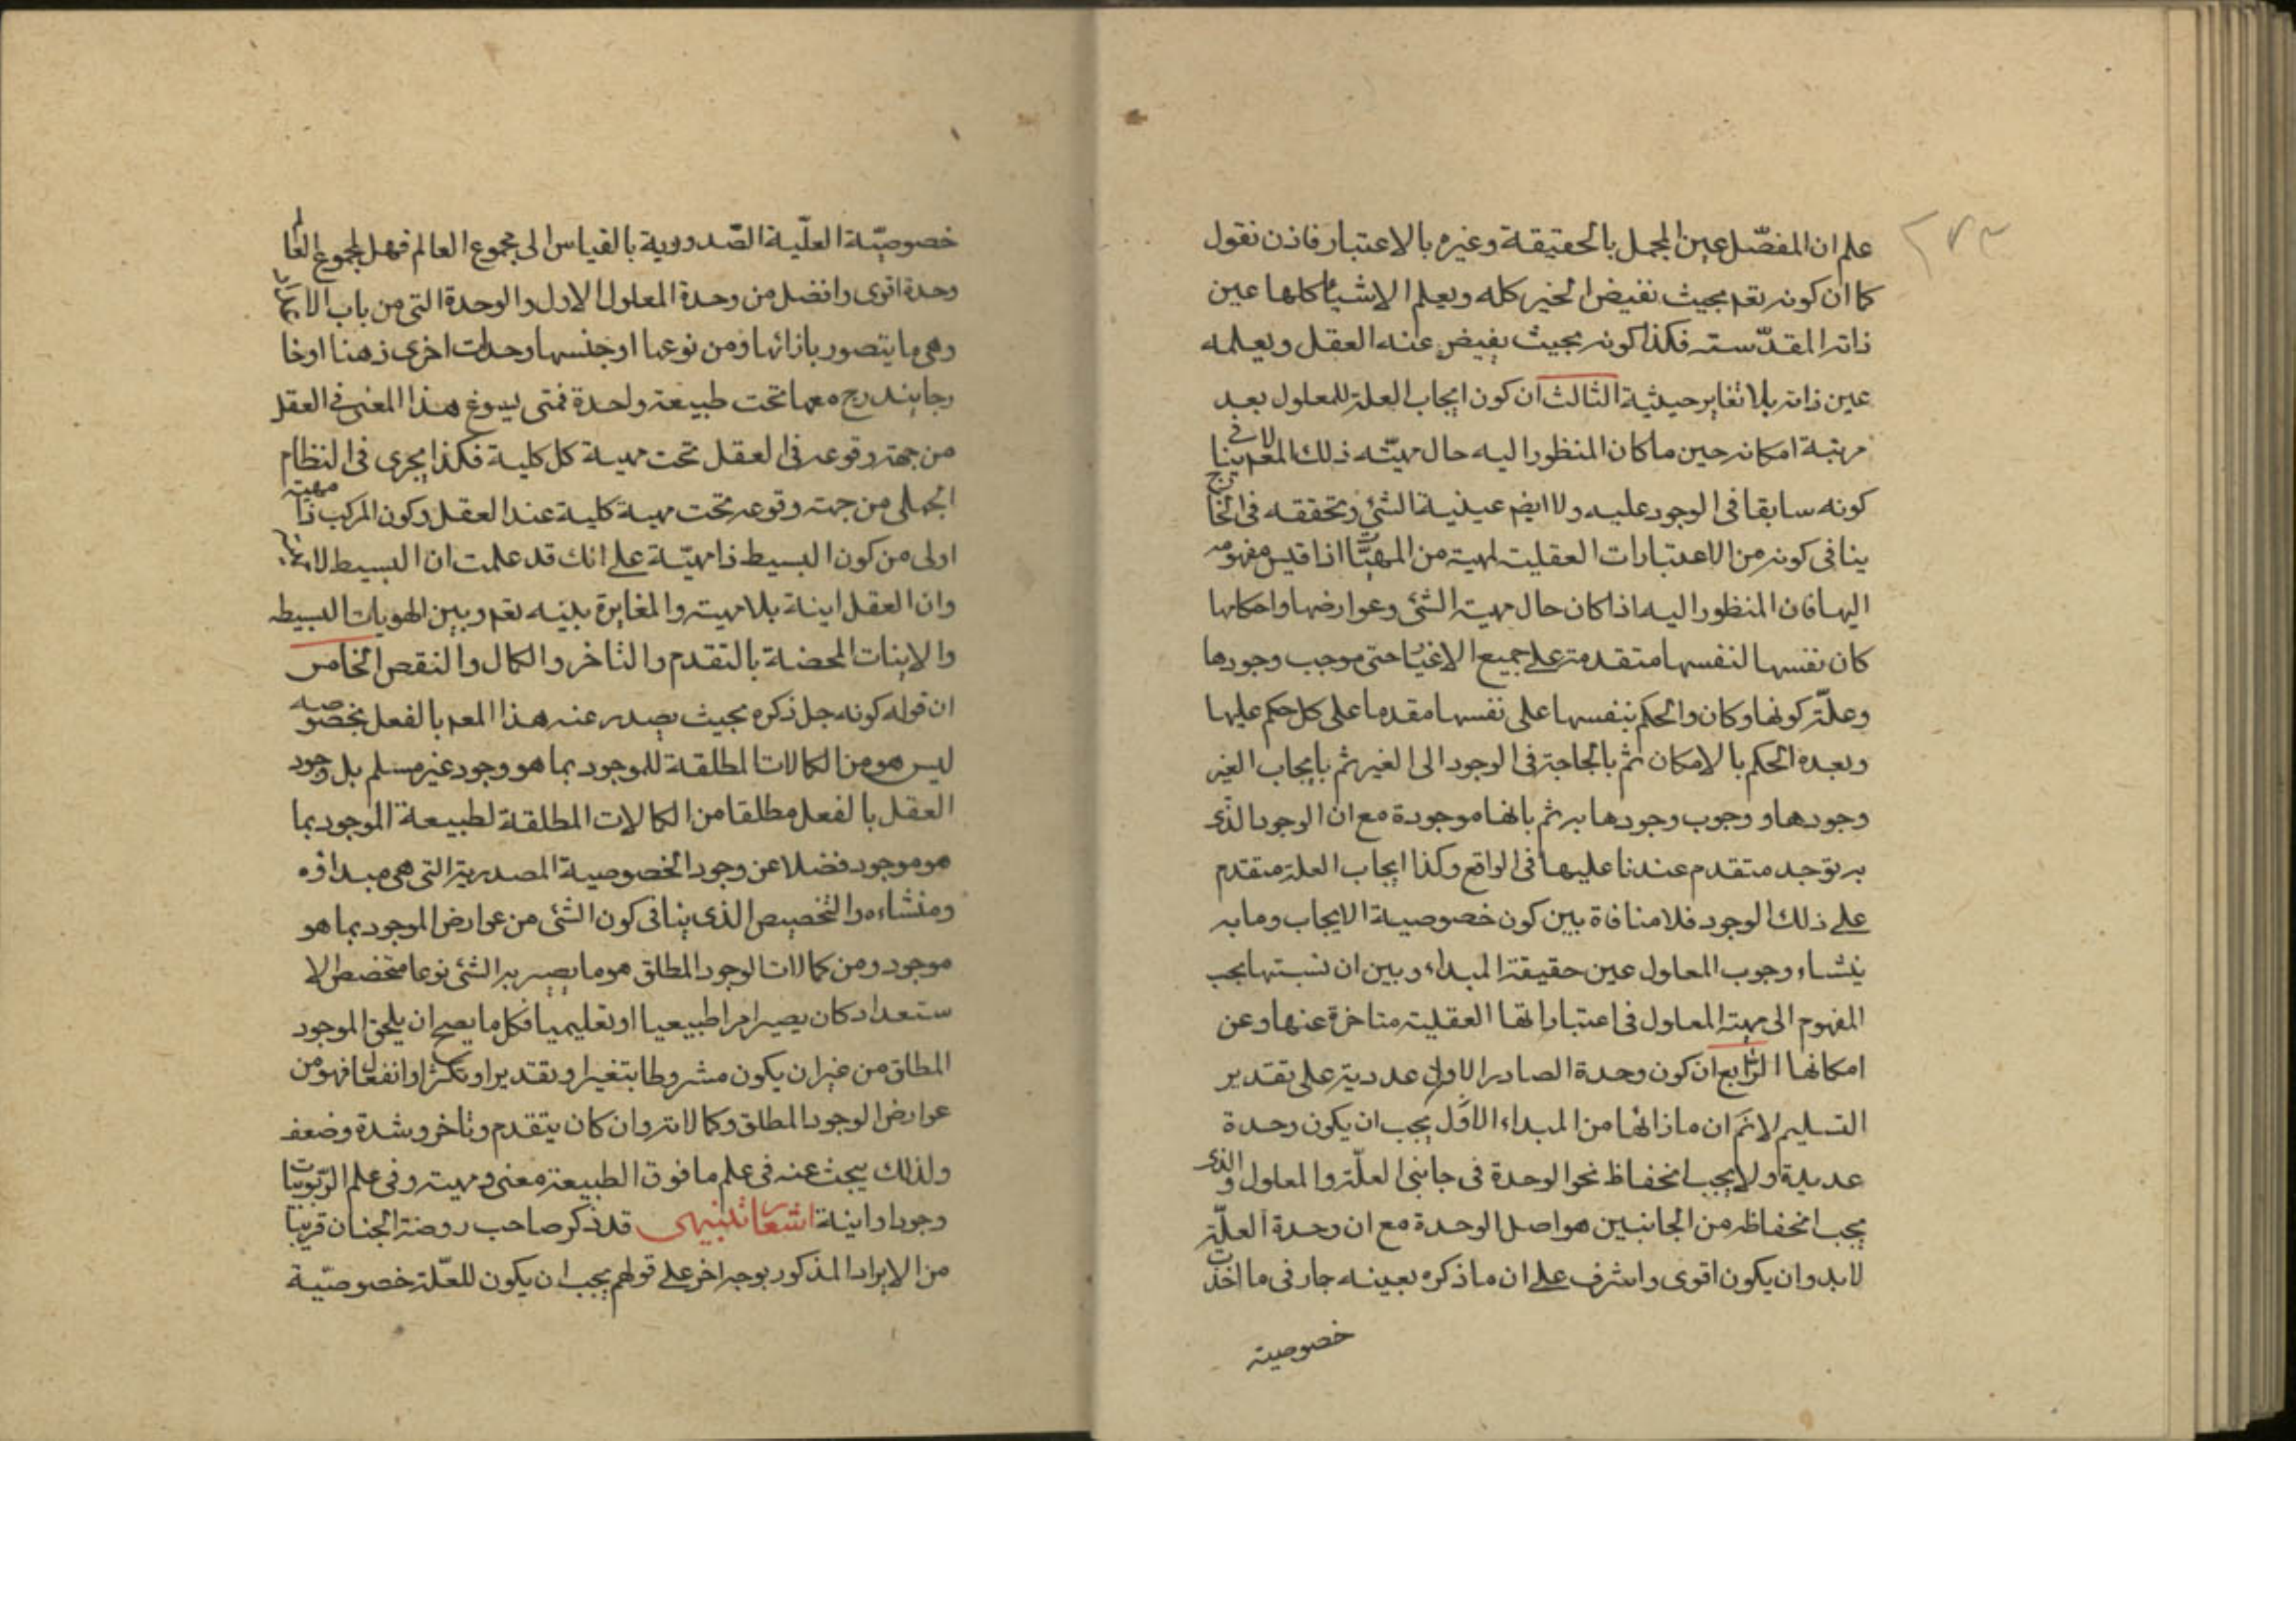 ٢٧٣
علم ان المفصّل عين المجمل بالحقيقة وغيره بالاعتبار فاذن نقول
كما ان كونه تعم بحيث نفيض الخير كله ويعلم الاشياء كلها عين
ذاته المقدّسته فكذا كونه بحيث يفيض عنه العقل ويعلمه
عين ذاته بلا تغاير حيثية الثالث ان كون ايجاب العلة للمعلول بعد
مرتبة امكانه حين ما كان المنظور اليه حال مهيّته ذلك المعم لا ينافي
كونه سابقا في الوجود عليه ولا ايضم عينية الشئ وتحققه في الخارج
ينافى كونه من الاعتبارات العقليت لمهية من المهيّات اذا قيس مفهومه
اليها فان المنظور اليه اذا كان حال مهية الشئ وعوارضها واحكامها
كان نفسها لنفسها متقدمة على جميع الاغيار حتى موجب وجودها
وعلّة كونها وكان والحكم بنفسها على نفسها مقدما على كل حكم عليها
وبعده الحكم بالامكان ثم بالحاجة في الوجود الى الغير ثم بايجاب الغير
وجودها و وجوب وجودها به ثم بانها موجودة مع ان الوجود الذى
به توجد متقدم عندنا عليها في الواقع وكذا ايجاب العلة متقدم
على ذلك الوجود فلا منافاة بين كون خصوصية الايجاب وما به
ينشاء وجوب المعلول عين حقيقة المبداء وبين ان نسبتها بحب
المفهوم الى مهية المعلول في اعتباراتها العقلية متاخرة عنها وعن
امكانها الرابع ان كون وحدة الصادر الاول عددية على تقدير
التسليم لا نم ان ما ذاتها من المبداء الاوّل يجب ان يكون وحدة
عددية ولا يجب انحفاظ نحو الوحدة في جانبى العلّة والمعلول والذى
يجب انحفاظه من الجانبين هو اصل الوحدة مع ان وحدة العلّة
لابد وان يكون اقوى واشرف على ان ما ذكره بعينه جار في ما اخذت
خصوصية
خصوصيّة العلّية الصّدورية بالقياس الى مجموع العالم فهل لمجموع العالم
وحدة اقوى وافضل من وحدة المعلول الاول والوحدة التي من باب الاعداد
وهى ما يتصور بازائها ومن نوعها او جنسها وحدات اخرى ذهنا او خا
رجا يندرج معها تحت طبيعة واحدة فمتى يسوغ هذا المعنى في العقل
من جهة وقوعه في العقل تحت مهية كل كلية فكذا يجرى في النظام
الجملى من جهة وقوعه تحت مهية كلية عند العقل وكون المركب ذا مهية
اولى من كون البسيط ذا مهيّة على انك قد علمت ان البسيط لا
وان العقل اينة بلا مهية والمغايرة بينه تعم وبين الهويات البسيطه
والاينات المحضة بالتقدم والتاخر والكمال والنقص الخامس
ان قوله كونه جل ذكره بحيث يصدر عنه هذا المعم بالفعل بخصوصه
ليس هو من الكمالات المطلقة للموجود بما هو وجود غير مسلم بل وجود
العقل بالفعل مطلقا من الكمالات المطلقة لطبيعة الموجود بما
هو موجود فضلا عن وجود الخصوصية المصدرية التي هى مبداؤه
ومنشاءه والتخصيص الذى ينافى كون الشئ من عوارض الموجود بما هو
موجود ومن كمالات الوجود المطلق هو ما يصير به الشئ نوعا متخصص الا
ستعداد كان يصير امرا طبيعيا او تعليميا فكل ما يصح ان يلحق الموجود
المطلق من غير ان يكون مشروطا بتغير او تقدير او تكثر او انفعال فهو من
عوارض الوجود المطلق وكمالاته وان كان بتقدم وتاخر وشدة وضعف
ولذلك يبحث عنه في علم ما فوق الطبيعة معنى ومهية وفى علم الربوبيات
وجودا واينة اشعار تنبيهى قد ذكر صاحب روضة الجنان قريبا
من الايراد المذكور بوجه اخر على قولهم يجب ان يكون للعّلة خصوصيّة